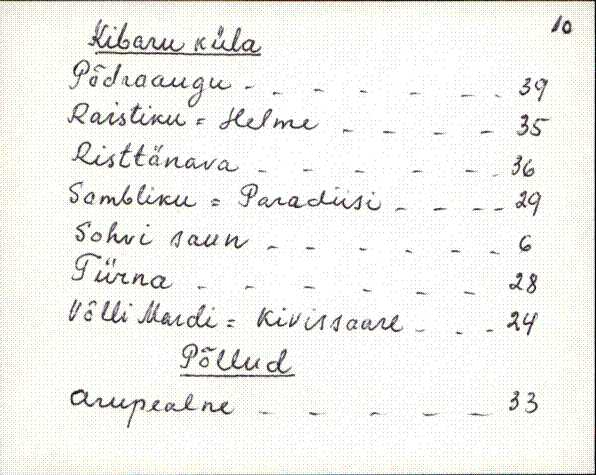 10
Kibaru küla
Põdraaugu - - - - - - - 39
Raistiku = Helme - - - - 35
Risttänava - - - - - - 36
Sambliku = Paradiisi - - - - 29
Sohvi saun - - - - - - 6
Türna - - - - - - 28
Võlli Mardi = Kivissaare - - - 24
Põllud
Arupealne - - - - - 33